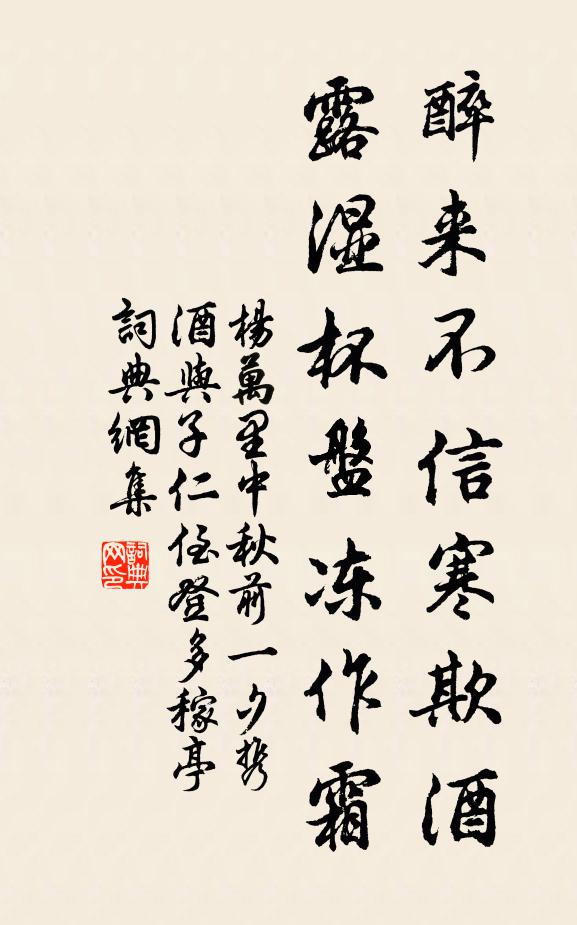 醉来不信寒欺酒
露湿杯盤冻作霜
楊萬里中秋前一夕携
酒與子仁侄登多稼亭
詞典網集
詞典網印